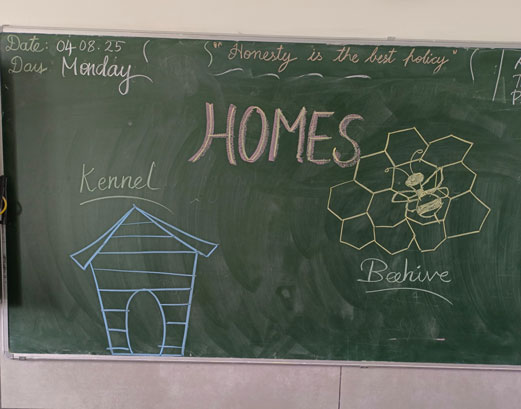 Date: 04.08.25
"Honesty is the best policy"
Day: Monday
HOMES
Kennel
Beehive